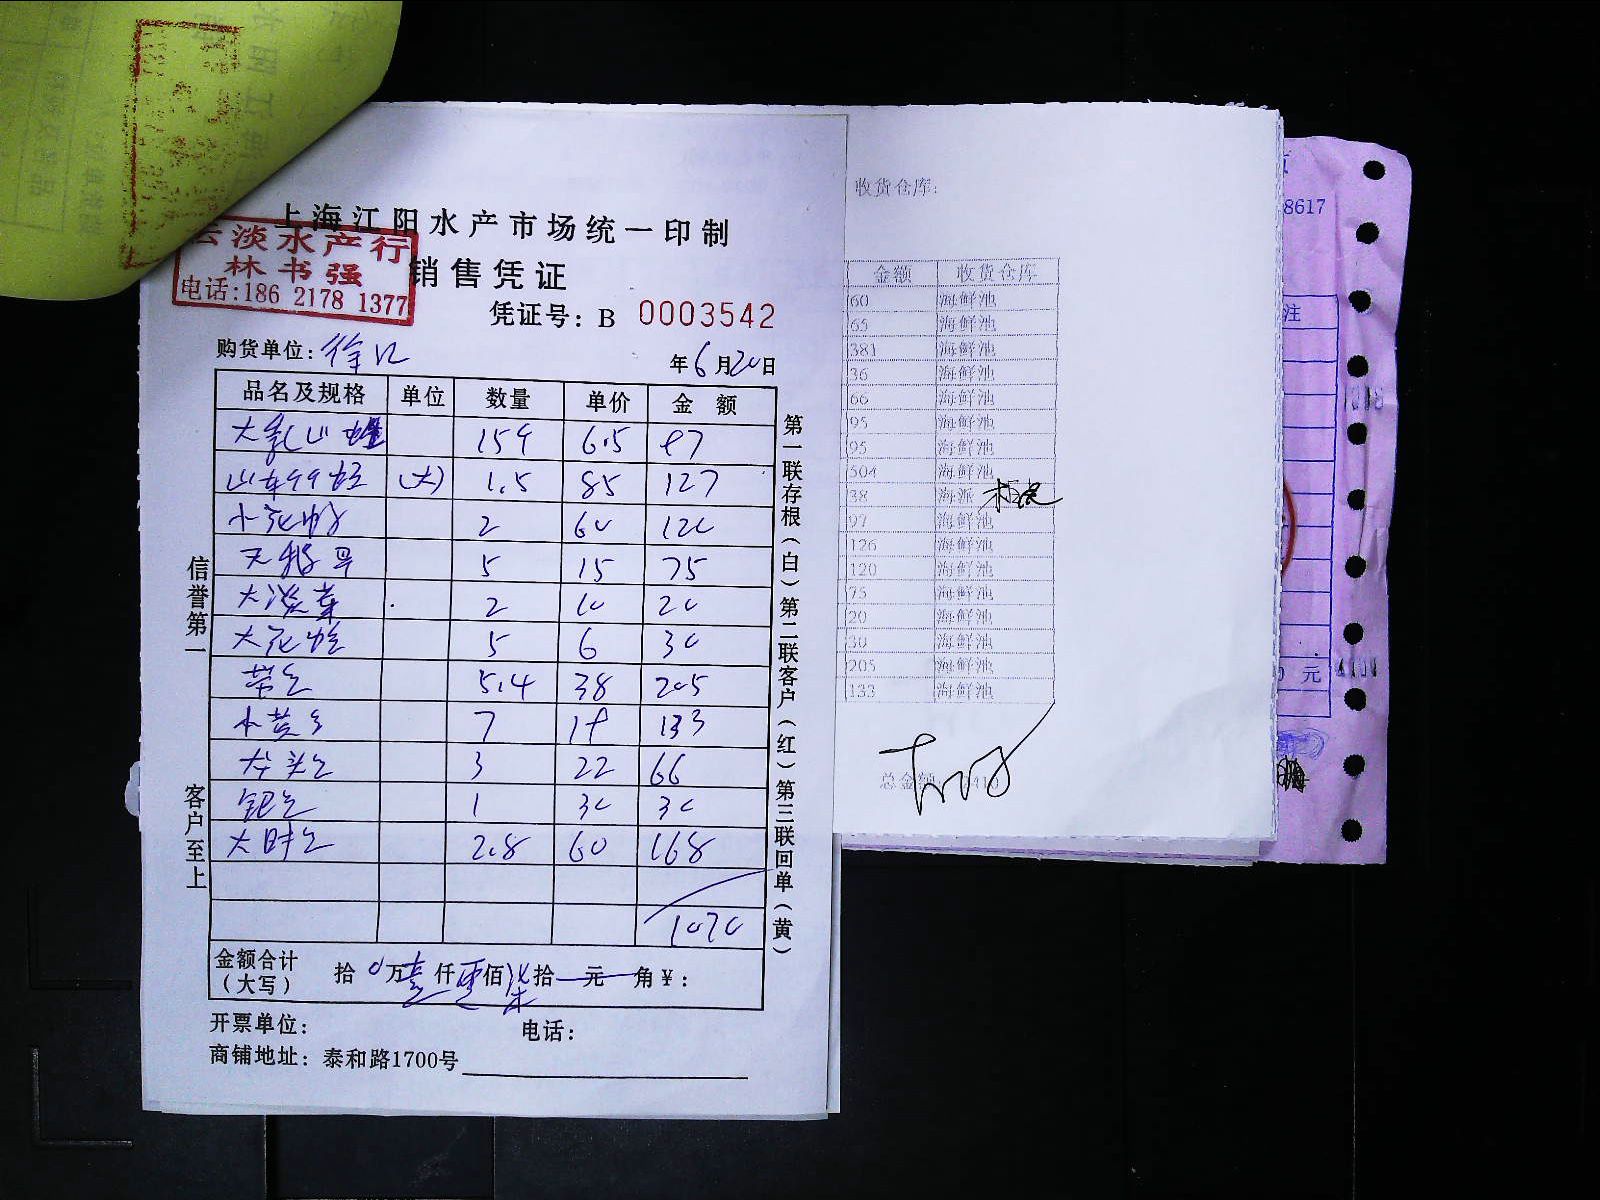 上海江阳水产市场统一印制
云淡水产行
林书强
电话:186 2178 1377
销售凭证
凭证号: B 0003542
购货单位: 徐汇
年6月20日
品名及规格 单位 数量 单价 金 额
大乳山蛏 15斤 6.5 97
(大) 1.5 85 127
小花蛤 2 60 120
天鹅蛋 5 15 75
大淡菜 2 10 20
大花蛤 5 6 30
带鱼 5.4 38 205
小黄鱼 7 19 133
龙头鱼 3 22 66
鲳鱼 1 30 30
2.8 60 168
1070
金额合计
(大写)
拾 0万壹仟零佰柒拾 元 角¥:
开票单位:
电话:
商铺地址: 泰和路1700号
信誉第一
客户至上
第一联存根(白)第二联客户(红)第三联回单(黄)
收货仓库:
金额 收货仓库
60 海鲜池
65 海鲜池
381 海鲜池
36 海鲜池
66 海鲜池
95 海鲜池
95 海鲜池
504 海鲜池
38 海派
97 海鲜池
126 海鲜池
120 海鲜池
75 海鲜池
20 海鲜池
30 海鲜池
205 海鲜池
133 海鲜池
总金额
8617
注
元